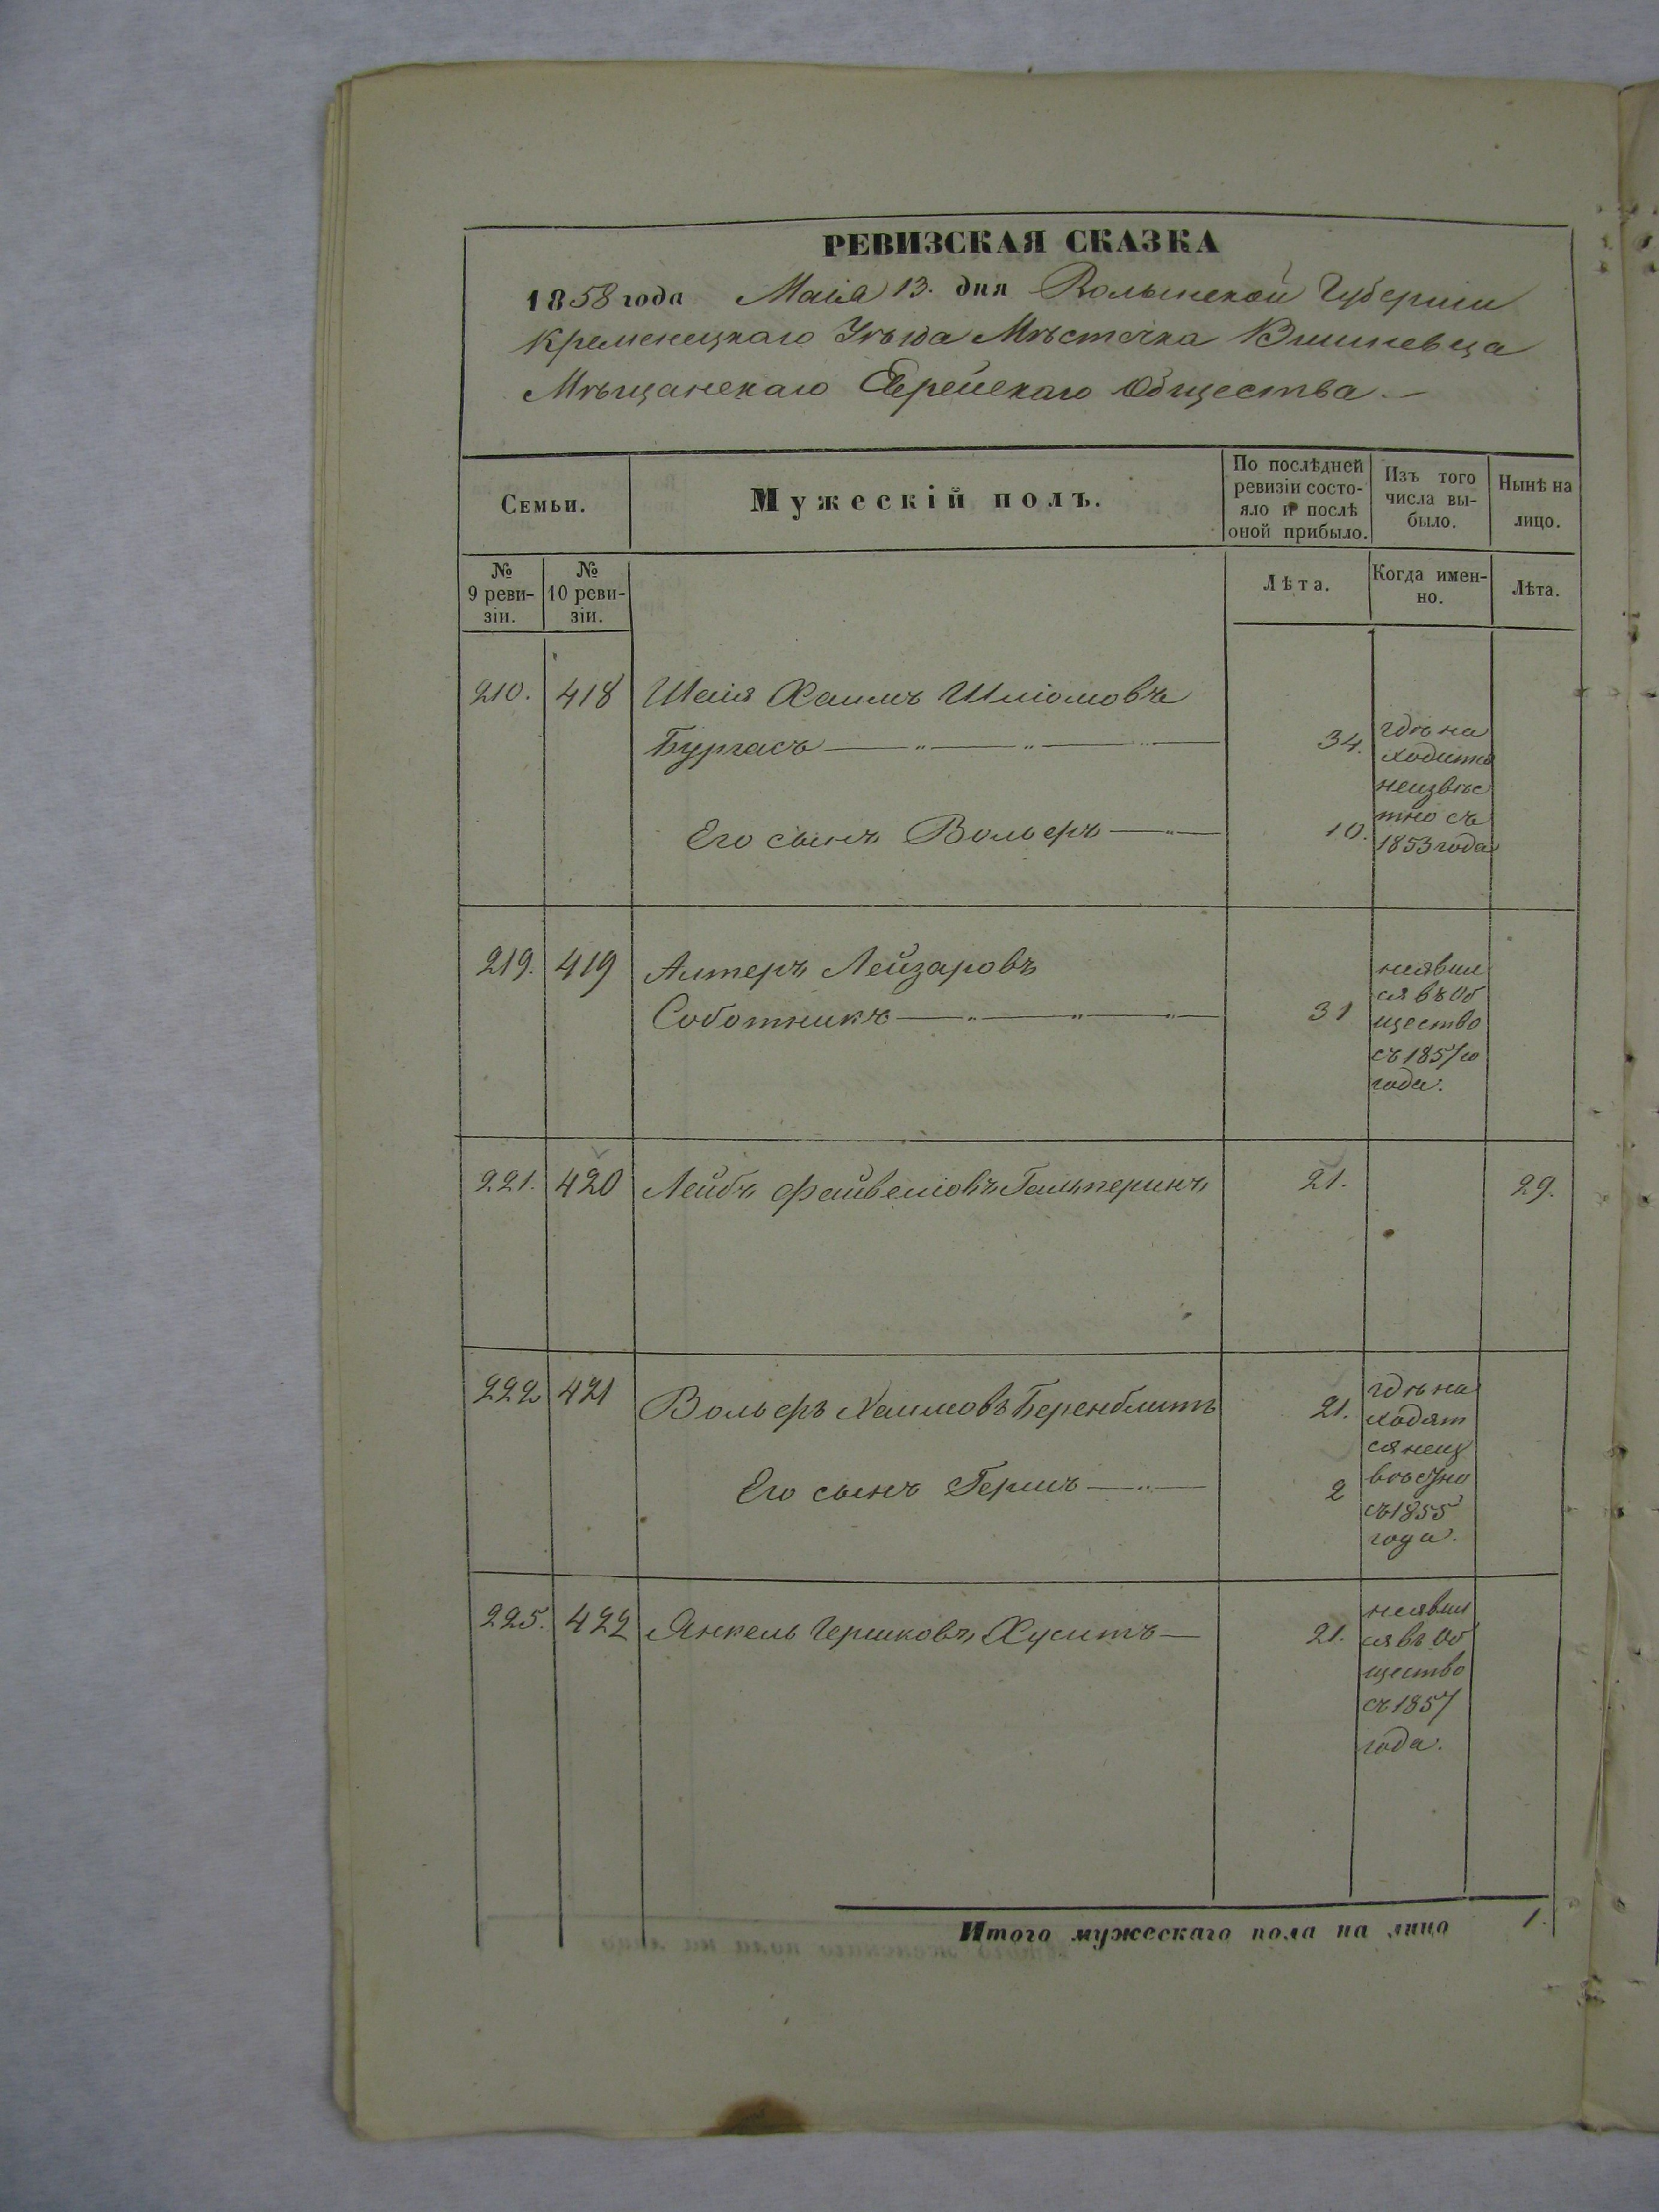 РЕВИЗСКАЯ СКАЗКА
1858 года Маія 13. дня Волынской Губерніи
Кременецкаго Уѣзда Мѣстечка Вишневца
Мѣщанскаго Еврейскаго Общества
Семьи.
Мужескій полъ.
По послѣдней
ревизіи состо-
яло и послѣ
оной прибыло.
Изъ того
числа вы-
было.
Нынѣ на
лицо.
№
9 реви-
зіи.
№
10 реви-
зіи.
Лѣта.
Когда имен-
но.
Лѣта.
210. 418 Шаія Хаимъ Шліомовъ
Бургасъ 34.
Его сынъ Вольфъ 10.
гдѣ на
ходится
неизвѣс
тно съ
1853 года
219. 419 Алтеръ Лейзаровъ
Соботникъ 31
неявил
ся въ Об
щество
съ 1857го
года.
221. 420 Лейбъ Файвелювъ Гальперинъ 21. 29.
222 421 Вольфъ Хаимовъ Беренблитъ 21.
Его сынъ Гершъ 2
гдѣ на
ходят
ся неиз
вѣстно
съ 1855
года.
225. 422 Янкель Гершковъ Хуситъ 21.
неявил
ся въ Об
щество
съ 1857
года.
Итого мужескаго пола на лицо 1.